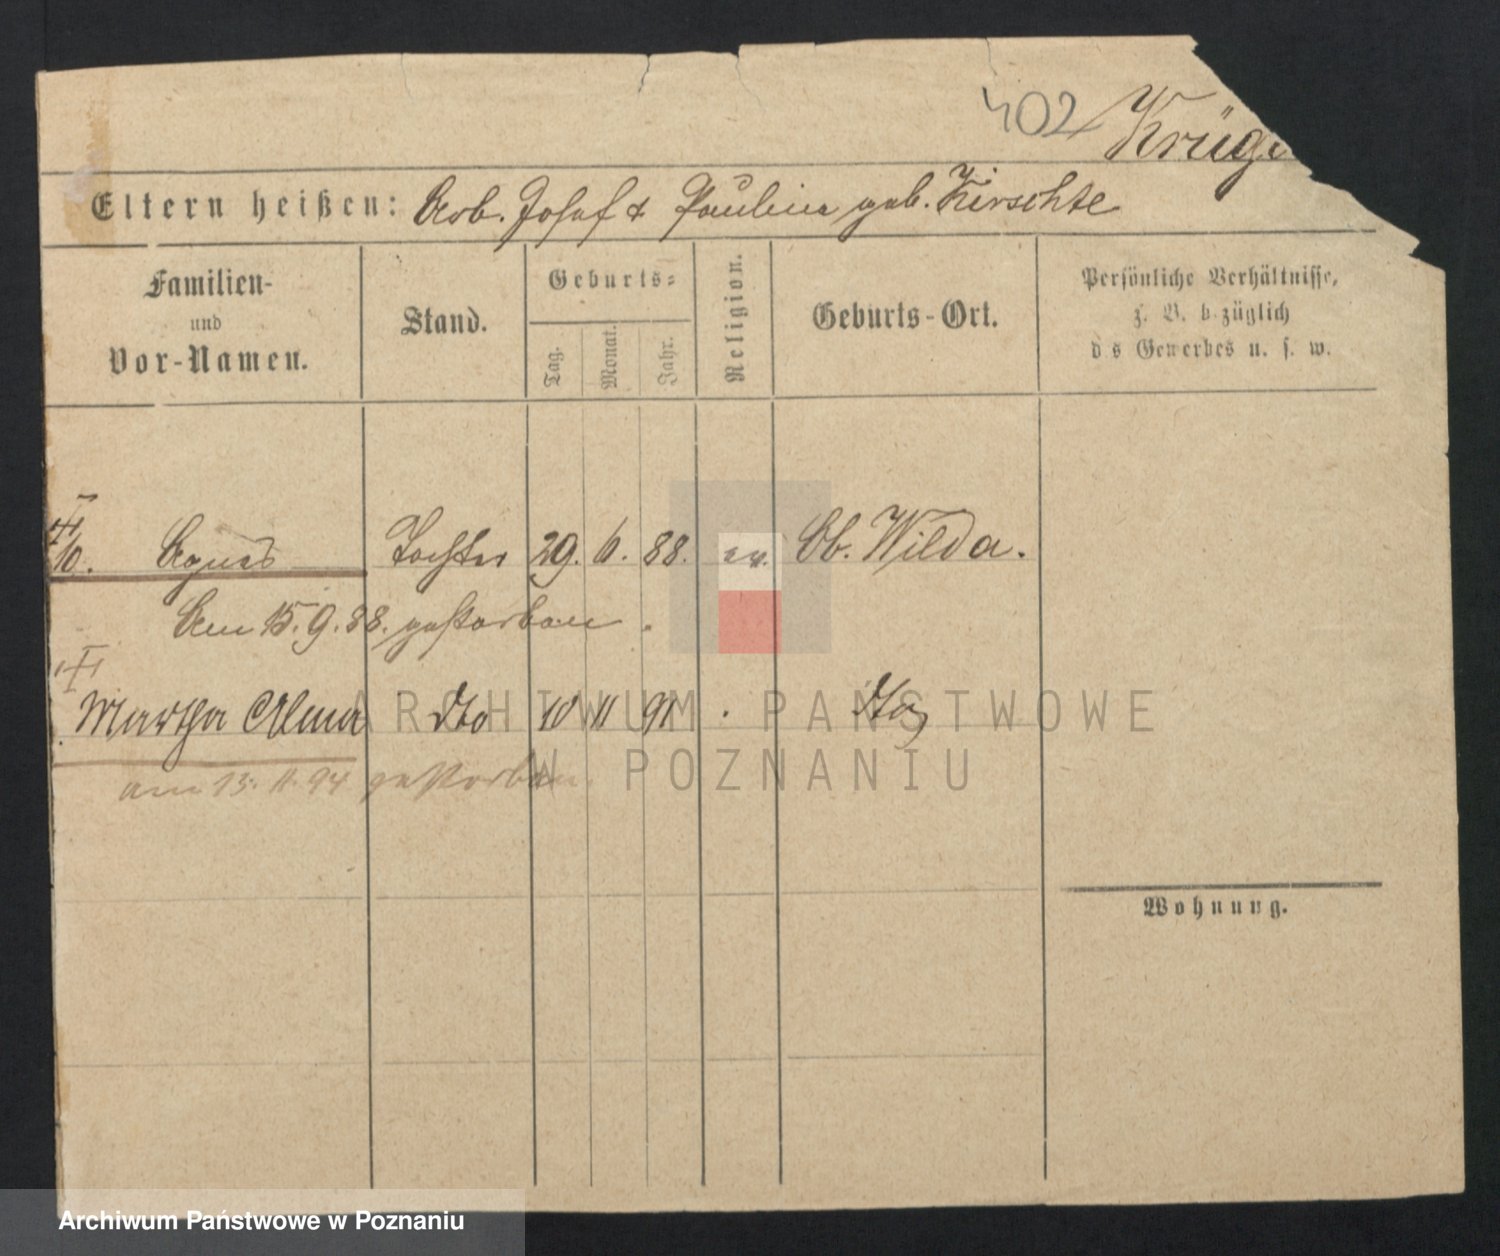 402 Krüge
Eltern heißen: Arb. Josef & Pauline geb. Kirschte
Familien- und Vor-Namen.
Stand.
Geburts-
Tag. Monat. Jahr.
Religion.
Geburts-Ort.
Persönliche Verhältnisse,
z. B. bezüglich
des Gewerbes u. s. w.
10. Agnes Tochter 29. 6. 88. ev. Ob. Wilda.
Am 15.9.88. gestorben.
Martha Alma dto 10 11 91 . dto
am 13. 11. 94 gestorben.
Wohnung.
ARCHIWUM PAŃSTWOWE
W POZNANIU
Archiwum Państwowe w Poznaniu